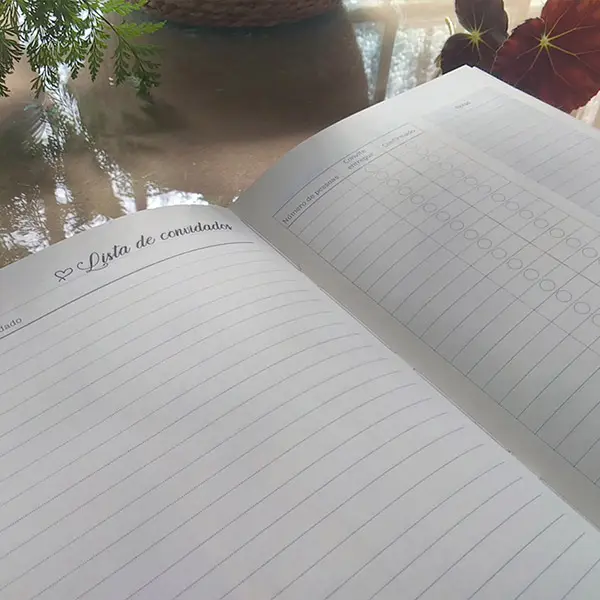 Lista de convidados
dado
Número de pessoas
Convite entregue
Confirmado